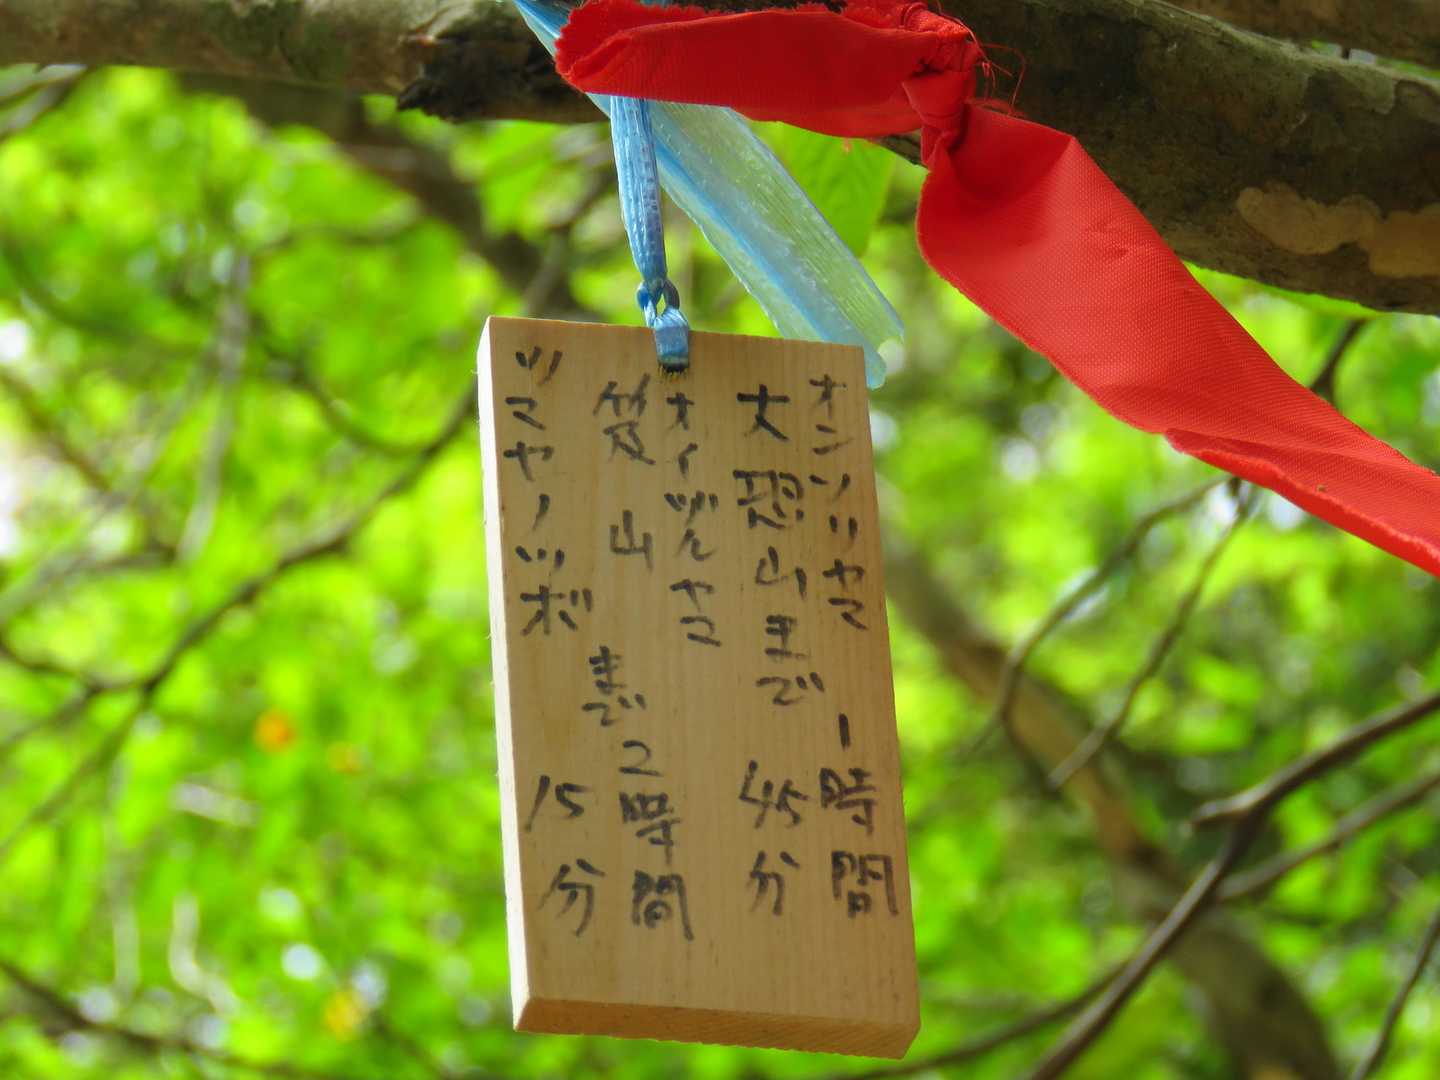 オンソリヤマ 1時間
大恐山まで 45分
オイヅルヤマ
笈山 まで 2時間
ツマヤノツボ 15分